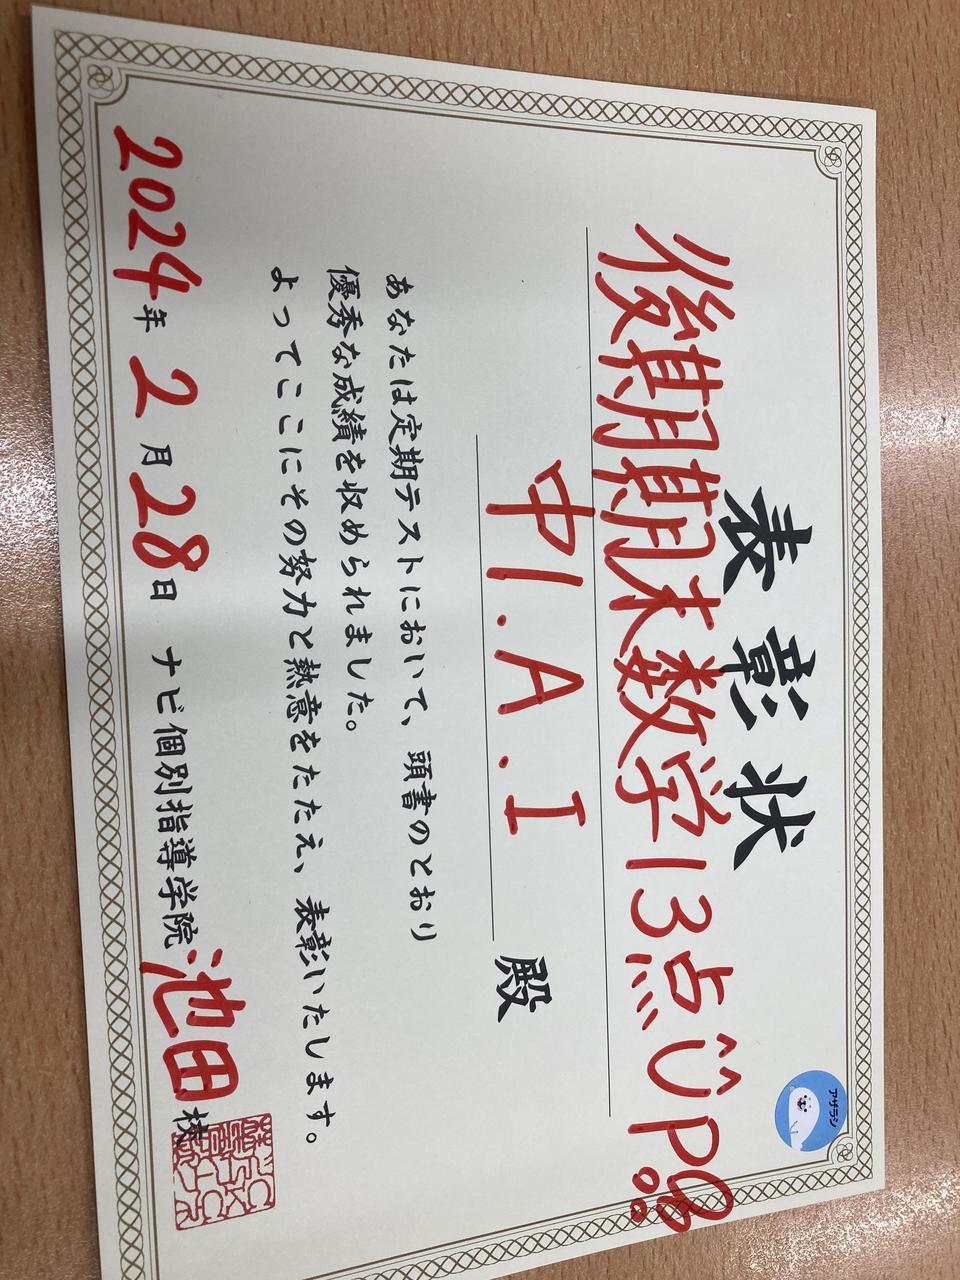 表彰状
アザラシ
後期期末数学13点 UP
中1.A.I 殿
あなたは定期テストにおいて、頭書のとおり
優秀な成績を収められました。
よってここにその努力と熱意をたたえ、表彰いたします。
2024年2月28日 ナビ個別指導学院 池田 校